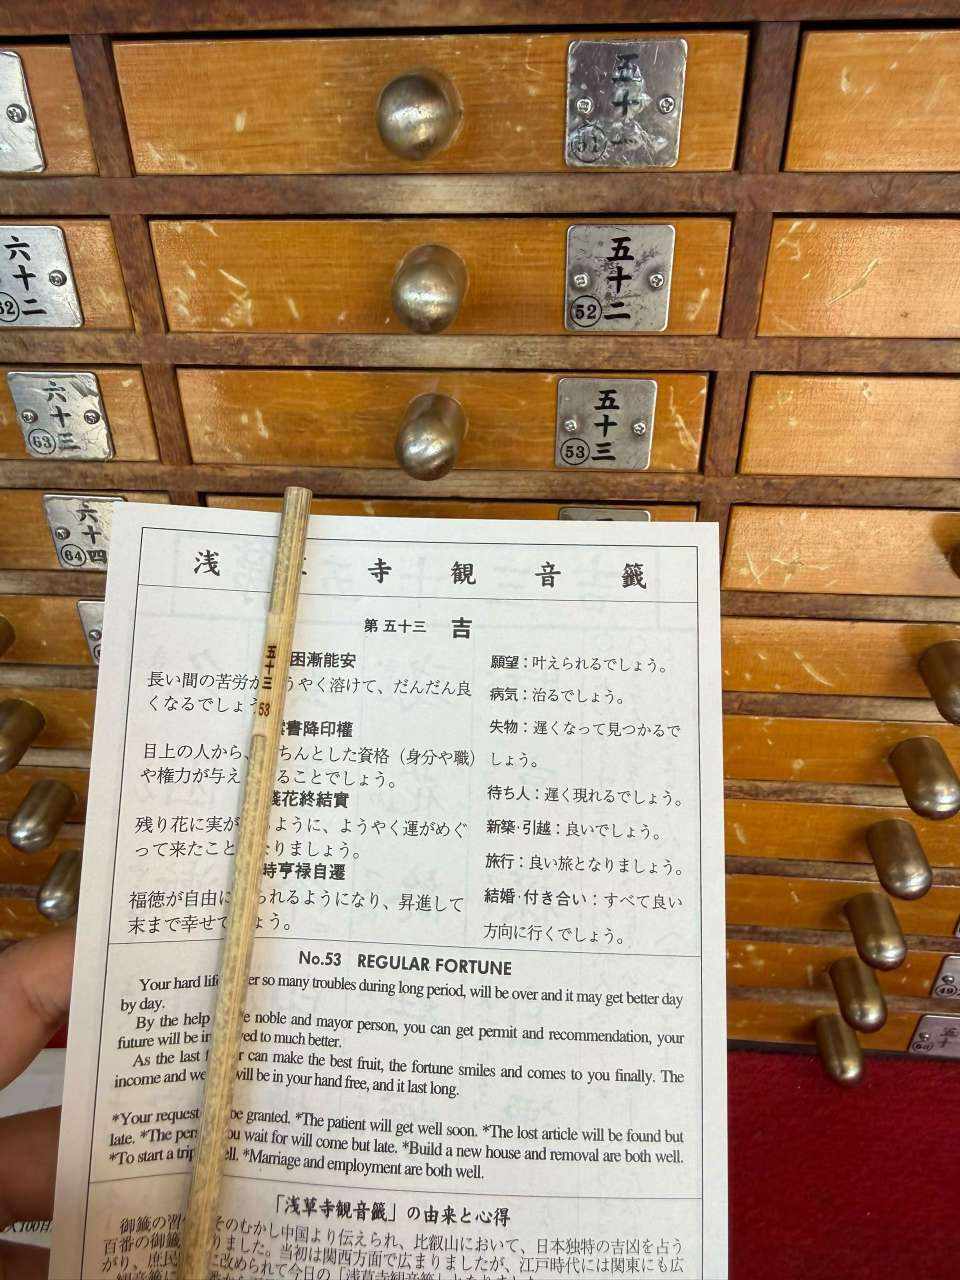 五十一
51
六十二
62
五十二
52
六十三
63
五十三
53
六十四
64
浅 寺 観 音 籤
第五十三 吉
困漸能安
長い間の苦労が うやく溶けて、だんだん良
くなるでしょ
書降印權
目上の人から、 ちんとした資格（身分や職）
や権力が与え ることでしょう。
残花終結實
残り花に実が ように、ようやく運がめぐ
って来たこと なりましょう。
時亨禄自遷
福徳が自由に られるようになり、昇進して
末まで幸せで ょう。
願望：叶えられるでしょう。
病気：治るでしょう。
失物：遅くなって見つかるで
しょう。
待ち人：遅く現れるでしょう。
新築·引越：良いでしょう。
旅行：良い旅となりましょう。
結婚·付き合い：すべて良い
方向に行くでしょう。
五十三
53
No.53 REGULAR FORTUNE
Your hard so many troubles during long period, will be over and it may get better day
by day.
By the help noble and mayor person, you can get permit and recommendation, your
future will be to much better.
As the last can make the best fruit, the fortune smiles and comes to you finally. The
income and will be in your hand free, and it last long.
*Your request be granted. *The patient will get well soon. *The lost article will be found but
late. *The you wait for will come but late. *Build a new house and removal are both well.
*To start a *Marriage and employment are both well.
「浅草寺観音籤」の由来と心得
御籤の習 そのむかし中国より伝えられ、比叡山において、日本独特の吉凶を占う
百番の御籤 りました。当初は関西方面で広まりましたが、江戸時代には関東にも広
がり、庶民 に改められて今日の「浅草寺観音籤」